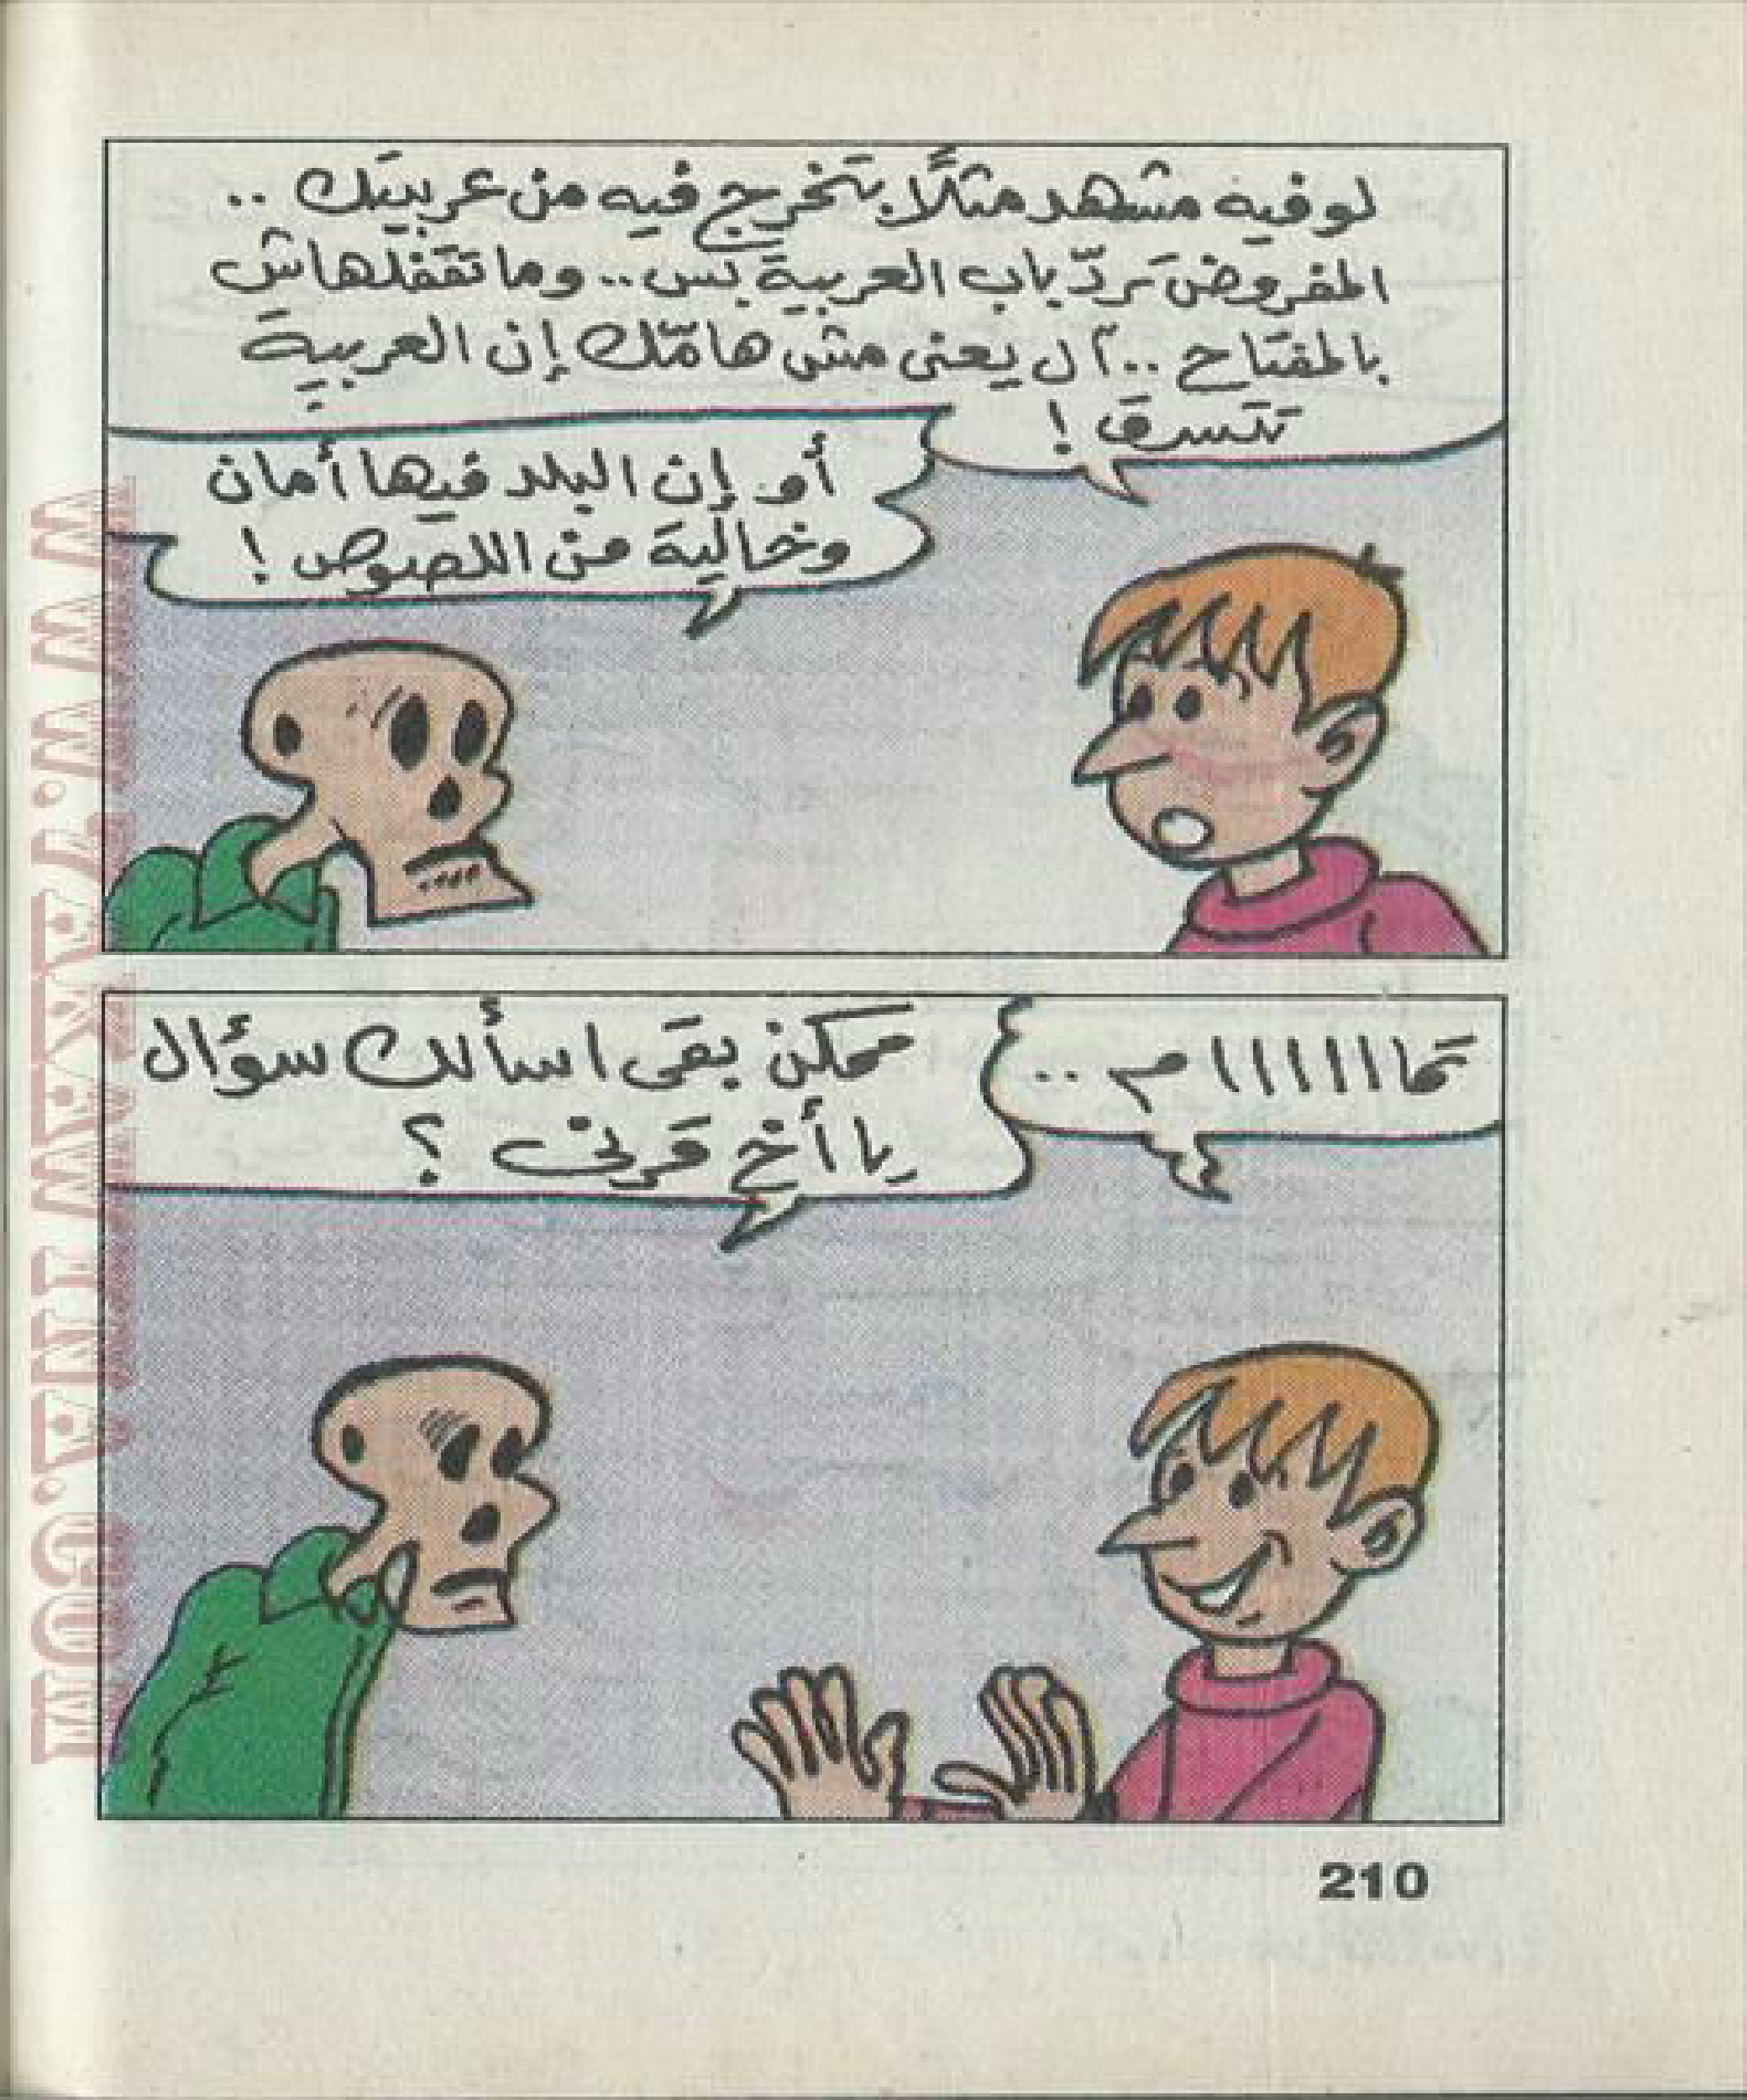 لو فيه مشهد مثلًا بتخرج فيه من عربيتك ..
المفروض تردّ باب العربية بس .. وما تقفلهاش
بالمفتاح .. آل يعنى مش هامّك إن العربية
تتسرق !
أو إن البلد فيها أمان
وخالية من اللصوص !
تمااااااام ..
ممكن بقى اسألك سؤال
يا أخ قرنى ؟
210